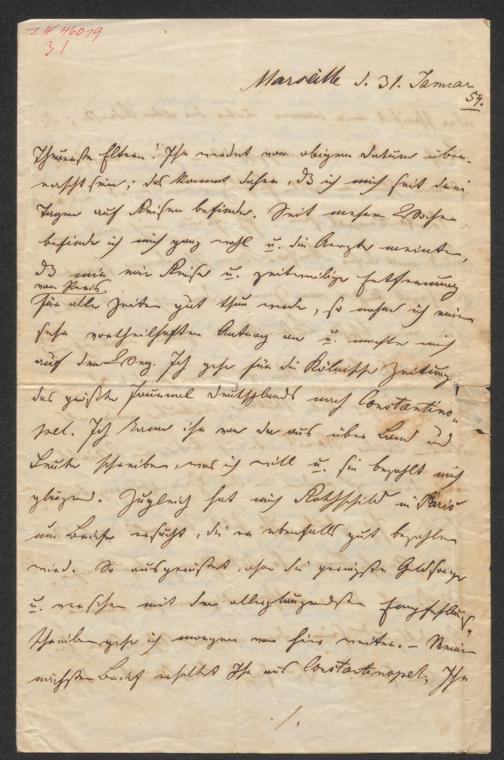 J. N 46019
31
Marseille d. 31. Januar
54.
Theuerste Eltern! Ihr werdet von obigem Datum über-
rascht sein; das kommt daher, dß ich mich seit drei
Tagen auf Reisen befinde. Seit mehren Wochen
befinde ich mich ganz wohl u. die Aerzte meinten,
dß mir eine Reise u. zeitweilige Entfernung
von Paris
für alle Zeiten gut thun werde, so nahm ich einen
sehr vortheilhaften Antrag an u. machte mich
auf den Weg. Ich gehe für die Kölnische Zeitung,
das größte Journal Deutschlands nach Constantino-
pel. Ich kann ihr von da aus über Land und
Leute schreiben, was ich will u. sie bezahlt mich
glänzend. Zugleich hat mich Rothschild in Paris
um Briefe ersucht, die er ebenfalls gut bezahlen
wird. So ausgerüstet, ohne die geringste Geldsorge
u. versehen mit den allerglänzendsten Empfehlungs-
schreiben gehe ich morgen von hier weiter. – Meinen
nächsten Brief erhaltet Ihr aus Constantinopel; Ihr
./.